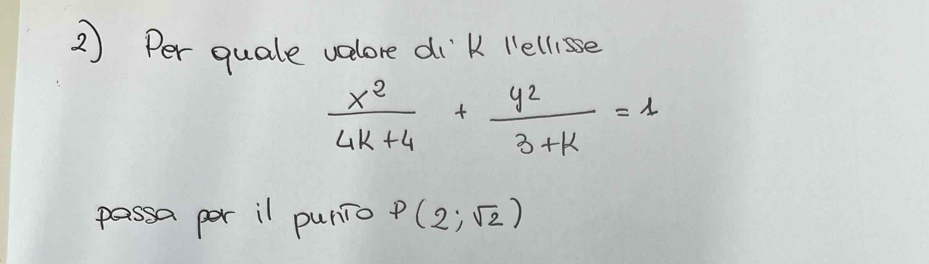 2) Per quale valore di K l'ellisse
x² / 4K+4 + y² / 3+K = 1
passa per il punto P(2; √2)